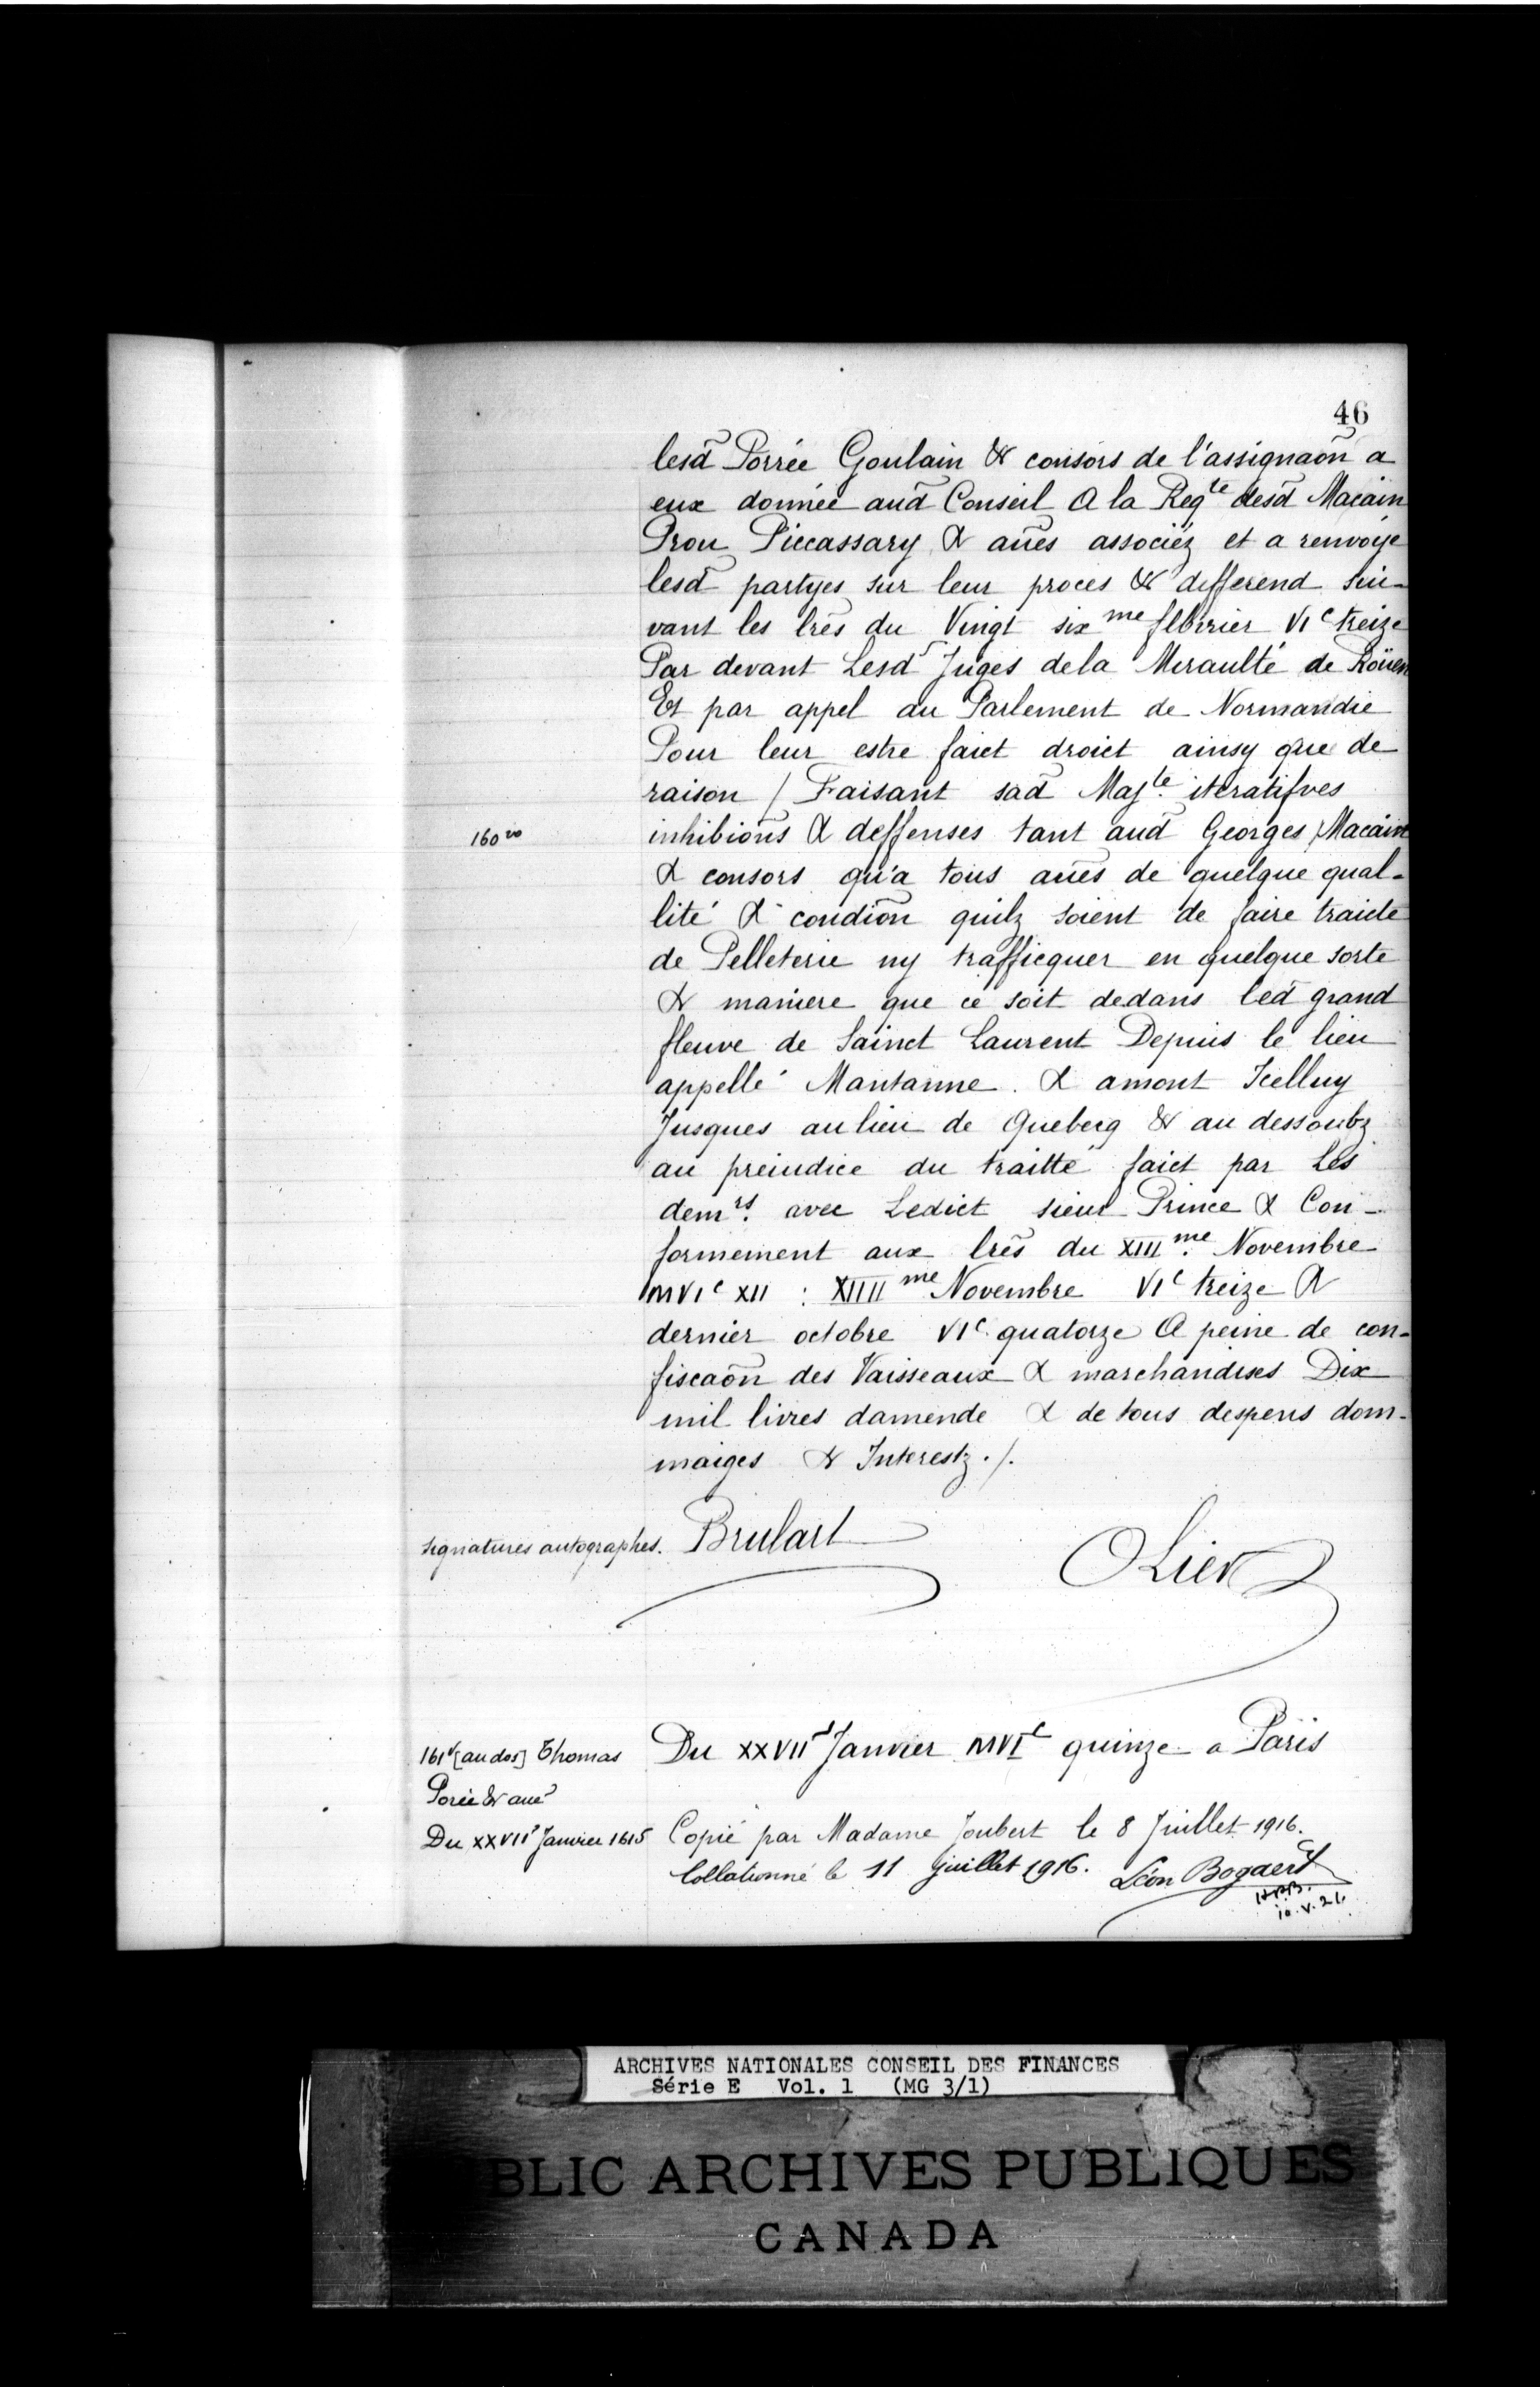 46
lesd̃ Porrée Goulain & consors de l'assignaõn a
eux donnée aud̃ Conseil A la Reqte desd̃ Macain
Prou Piecassary & aũes associéz et a renvoyé
lesd̃ partyes sur leur proces & differend sui-
vant les lrẽs du Vingt sixme febvrier VIc treize
Par devant Lesd̃ Juges dela Miraulté de Roüen
Et par appel au Parlement de Normandie
Pour leur estre faict droict ainsy que de
raison / Faisant sad̃ Majte. iteratifves
160 vo
inhibiõns & deffenses tant aud̃ Georges Macain
& consors qu'a tous aũes de quelque qual-
lité & condiõn quilz soient de faire traicte
de Pelleterie ny trafficquer en quelque sorte
& maniere que ce soit dedans led̃ grand
fleuve de Sainct Laurent Depuis le lieu
appellé Mantanne. & amont Icelluy
Jusques au lieu de Queberg & au dessoubz
au preiudice du traitté faict par Les
demrs. avec Ledict sieur Prince & Con-
formement aux lrẽs du XIIIme. Novembre
MVIc XII : XIIIIme Novembre VIc treize &
dernier octobre VIc quatorze A peine de con-
fiscaõn des Vaisseaux & marchandises Dix
mil livres damende & de tous despens dom-
maiges & Interestz ./.
signatures autographes. Brulart
OLier
161v [au dos] Thomas
Porée & aũe
Du XXVIIe Janvier 1615
Du XXVIIe Janvier MVIc quinze a Paris
Copié par Madame Joubert le 8 Juillet 1916.
Collationné le 11 Juillet 1916. Léon Bogaert
H.P.B.
10.V.21.
ARCHIVES NATIONALES CONSEIL DES FINANCES
Série E Vol. 1 (MG 3/1)
BLIC ARCHIVES PUBLIQUES
CANADA